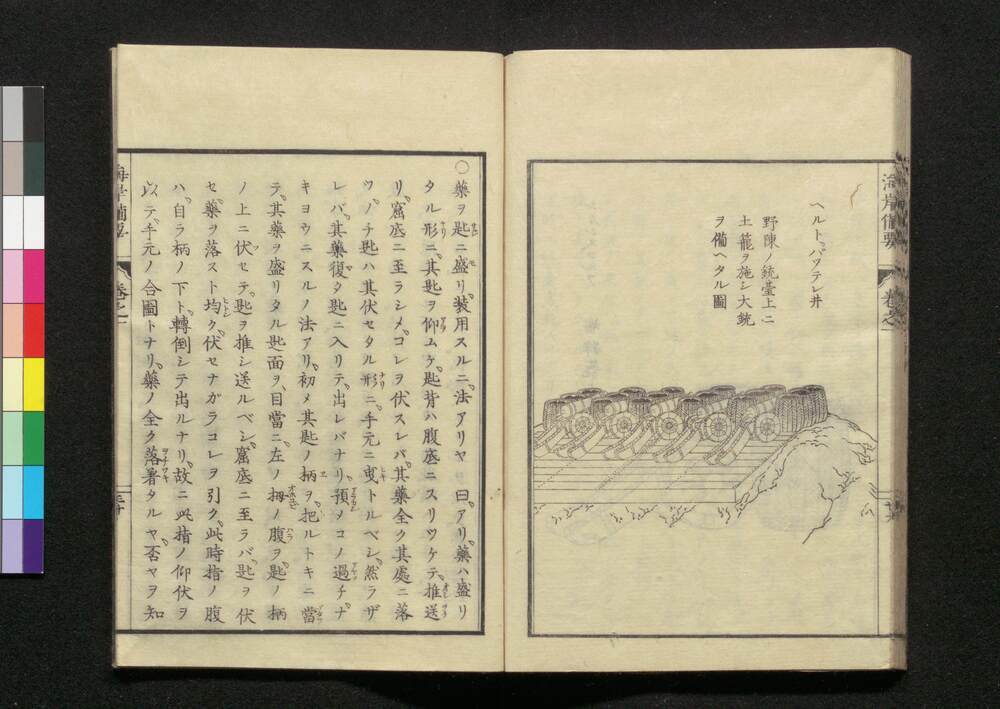 海岸備要
卷之一
ヘルトバッテレ井
野陳ノ銃臺上ニ
土籠ヲ施シ大銃
ヲ備ヘタル圖
○藥ヲ匙ニ盛リ裝用スルニ法アリヤ 曰アリ藥ハ盛リ
タル形ニ其匙ヲ仰ムケ匙背ハ腹底ニスリツケテ推送
リ窟底ニ至ラシメコレヲ伏スレバ其藥全ク其處ニ落
ツノチ匙ハ其伏セタル形ニ手元ニ曳トルベシ然ラザ
レバ其藥復タ匙ニ入リテ出レバナリ預メコノ過チナ
キヨウニスルノ法アリ初メ其匙ノ柄ヲ把ルトキニ當
テ其藥ヲ盛リタル匙面ヲ目當ニ左ノ拇ノ腹ヲ匙ノ柄
ノ上ニ伏セテ匙ヲ推シ送ルベシ窟底ニ至ラバ匙ヲ伏
セ藥ヲ落スト均ク伏セナガラコレヲ引ク此時指ノ腹
ハ自ラ柄ノ下ト轉倒シテ出ルナリ故ニ此指ノ仰伏ヲ
以テ手元ノ合圖トナリ藥ノ全ク落著タルヤ否ヤヲ知
海岸備要
卷之一